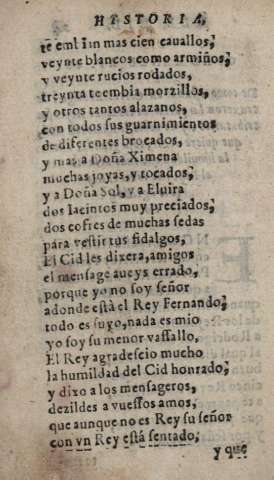 HYSTORIA,
mas cien cauallos,
veynte blancos como armiños,
y veynte rucios rodados,
treynta te embia morzillos,
y otros tantos alazanos,
con todos sus guarnimientos
de diferentes brocados,
y mas a Doña Ximena
muchas joyas, y tocados,
y a Doña Sol, y a Eluira
dos Iacintos muy preciados,
dos cofres de muchas sedas
para vestir tus fidalgos,
El Cid les dixera, amigos
el mensage aueys errado,
porque yo no soy señor
adonde está el Rey Fernando,
todo es suyo, nada es mio
yo soy su menor vassallo,
El Rey agradescio mucho
la humildad del Cid honrado,
y dixo a los mensageros,
dezildes a vuestros amos,
que aunque no es Rey su señor
con vn Rey está sentado,
y que